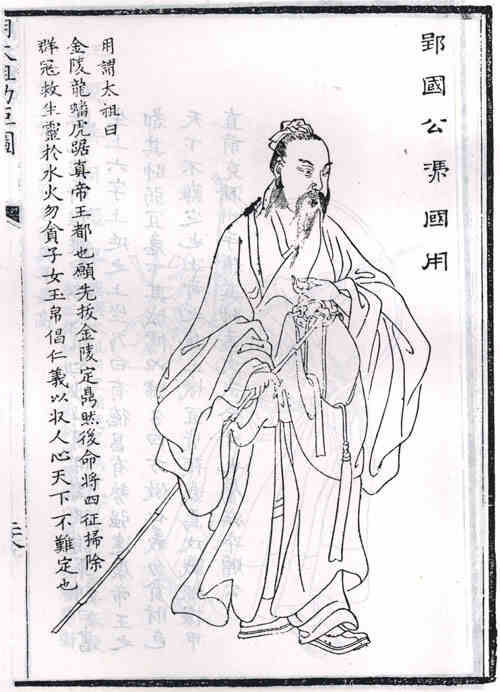 郢國公馮國用
用謂太祖曰
金陵龍蟠虎踞真帝王都也願先拔金陵定鼎然後命將四征掃除
群寇救生靈於水火勿貪子女玉帛倡仁義以収人心天下不難定也
太祖功臣圖